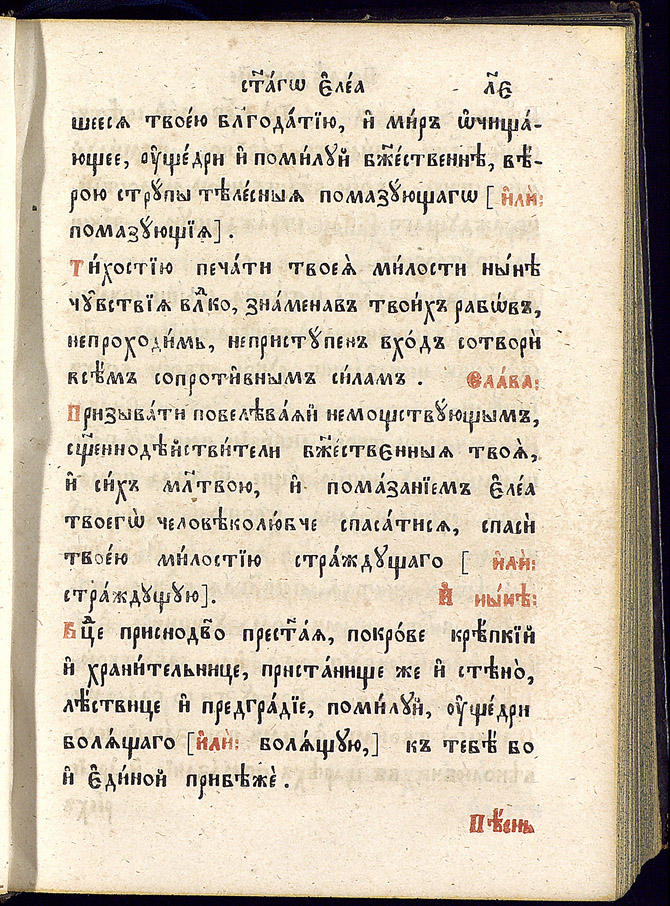 ст҃а́гѡ є҆ле́а л҃є
шееся твое́ю бл҃года́тїю, и҆ ми́ръ ѡ҆чища́-
ющее, ᲂу҆ще́дри и҆ поми́лꙋй бж҃е́ственнѣ, вѣ́-
рою стрꙋ́пы тѣле́сныя помазꙋ́ющагѡ [ и҆лѝ:
помазꙋ́ющїѧ ] .
Ти́хостїю печа́ти твоеѧ̀ ми́лости ны́нѣ
чꙋ̑вствїѧ влⷣко, зна́менавъ твои́хъ рабѡ́въ,
непроходи́мь, непристꙋ́пенъ вхо́дъ сотворѝ
всѣ̑мъ сопроти̑внымъ си́ламъ . Сла́ва:
Призыва́ти повелѣва́ѧй немощствꙋ́ющымъ,
сщ҃еннодѣйстви́тели бж҃е́ствєнныя твоѧ̑,
и҆ си́хъ мл҃твою, и҆ пома́занїемъ є҆ле́а
твоегѡ̀ человѣколю́бче спаса́тися, спасѝ
твое́ю ми́лостїю стра́ждꙋщаго [ и҆лѝ:
стра́ждꙋщꙋю ]. И҆ ны́нѣ:
Бц҃е приснодв҃о прест҃а́я, покро́ве крѣ́пкїй
и҆ храни́тельнице, приста́нище же и҆ стѣно̀,
лѣ́ствице и҆ предгра́дїе, поми́лꙋй, ᲂу҆ще́дри
болѧ́щаго [ и҆лѝ: болѧ́щꙋю, ] къ тебѣ́ бо
и҆ є҆ди́ной прибѣ́же .
Пѣ́снь